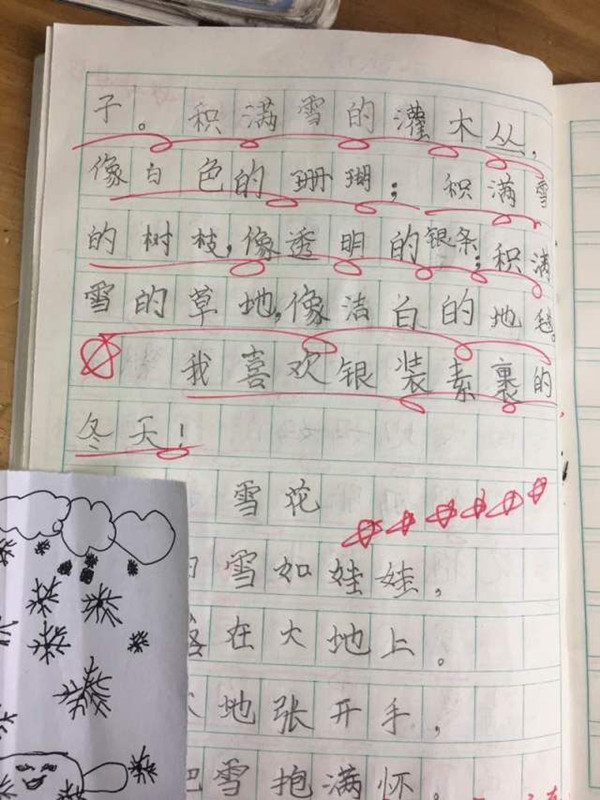 子。积满雪的灌木丛，
像白色的珊瑚；积满雪
的树枝，像透明的银条；积满
雪的草地，像洁白的地毯。
我喜欢银装素裹的
冬天！
雪花
雪如娃娃，
落在大地上。
地张开手，
把雪抱满怀。